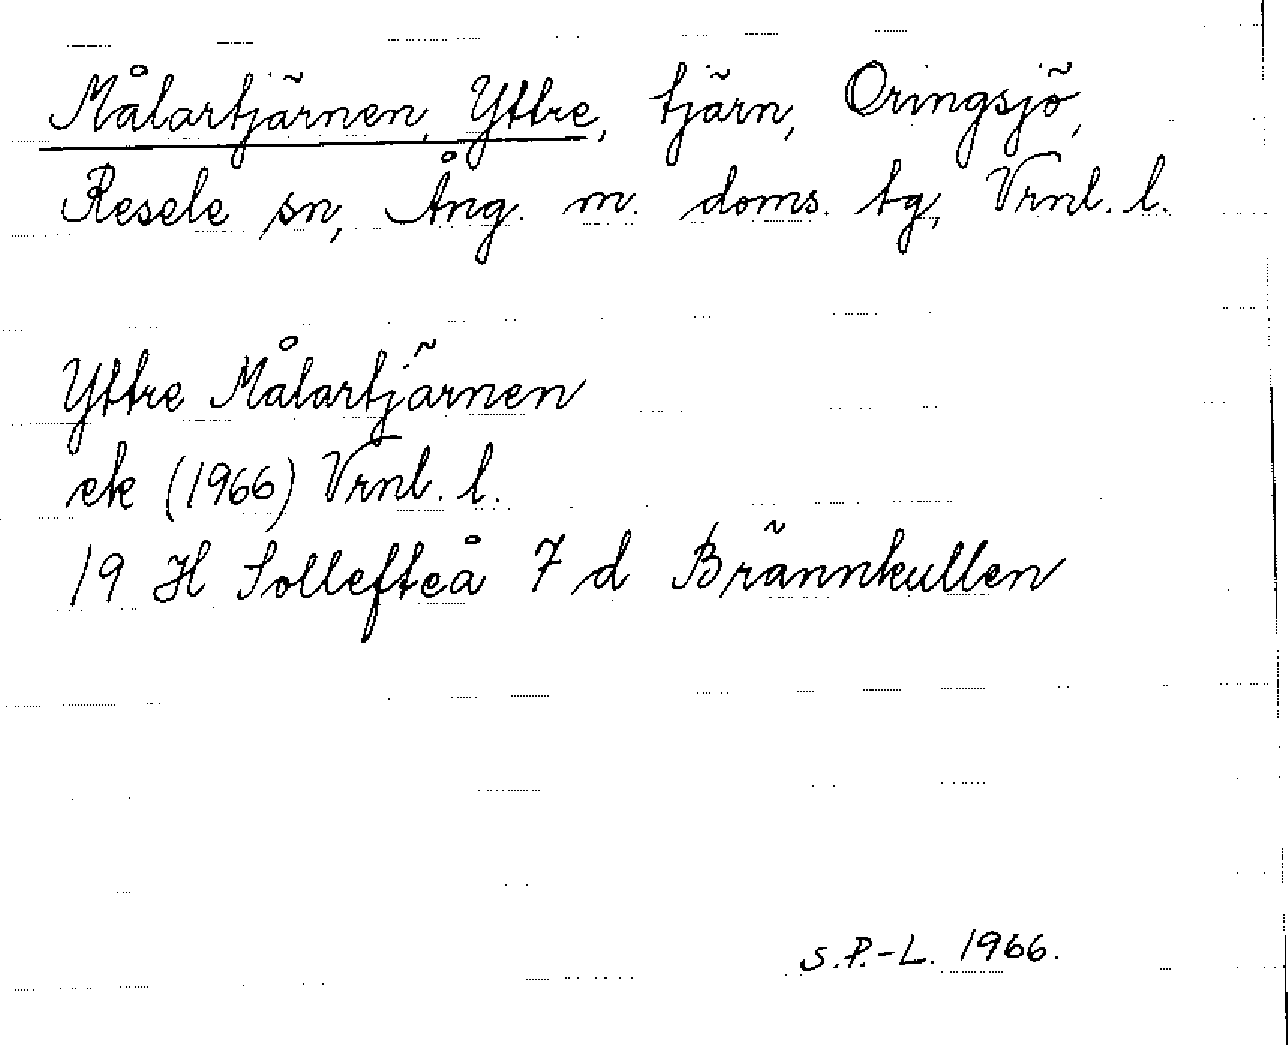 Målartjärnen, Yttre, tjärn, Oringsjö,
Resele sn, Ång. m. doms. tg, Vrnl. l.
Yttre Målartjärnen
ek (1966) Vrnl. l.
19 H Sollefteå 7 d Brännkullen
S.P.-L. 1966.